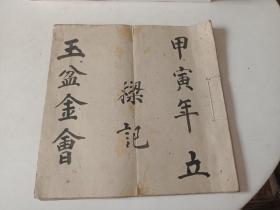 甲寅年立
樑記
玉盆金會